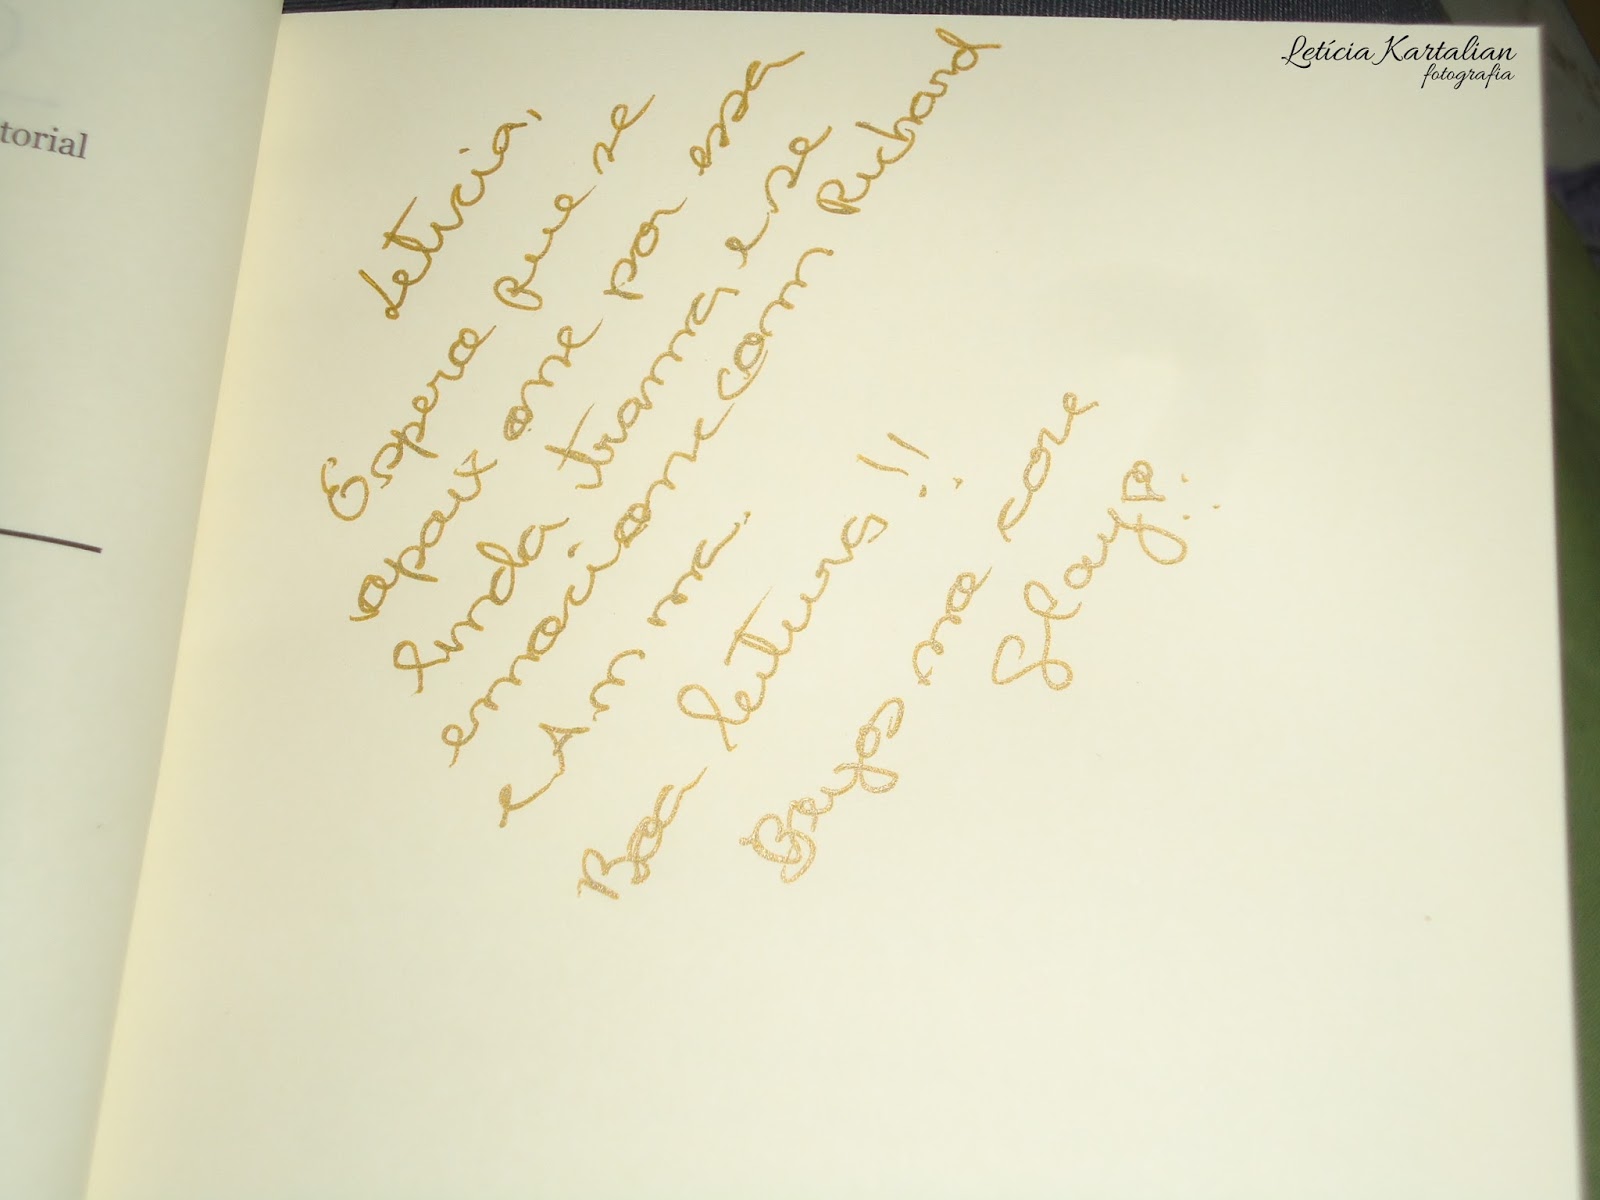 torial
Letícia Kartalian
fotografia
Leticia,
Espero que se
apaixone por essa
linda trama e se
emocione com Richard
e Anna.
Boa leitura!!
Beijos no core